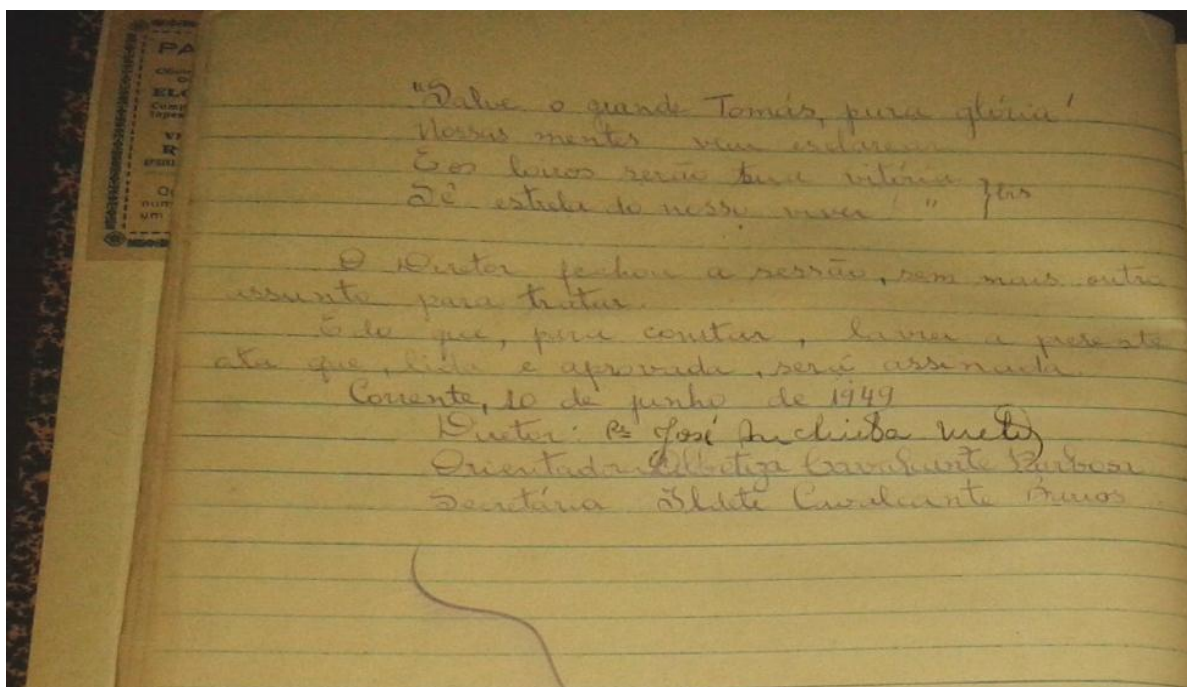 PA
ELO
"Salve o grande Tomás, pura glória!
Nossas mentes vem esclarecer
E os louros serão tua vitória
Sê estrela do nosso viver! " } bis
O Diretor fechou a sessão, sem mais outro
assunto para tratar.
E do que, para constar, lavrei a presente
ata que, lida e aprovada, será assinada.
Corrente, 10 de junho de 1949
Diretor: José Anchieta
Orientadora Cavalcante Barbosa
Secretária Ildete Cavalcante